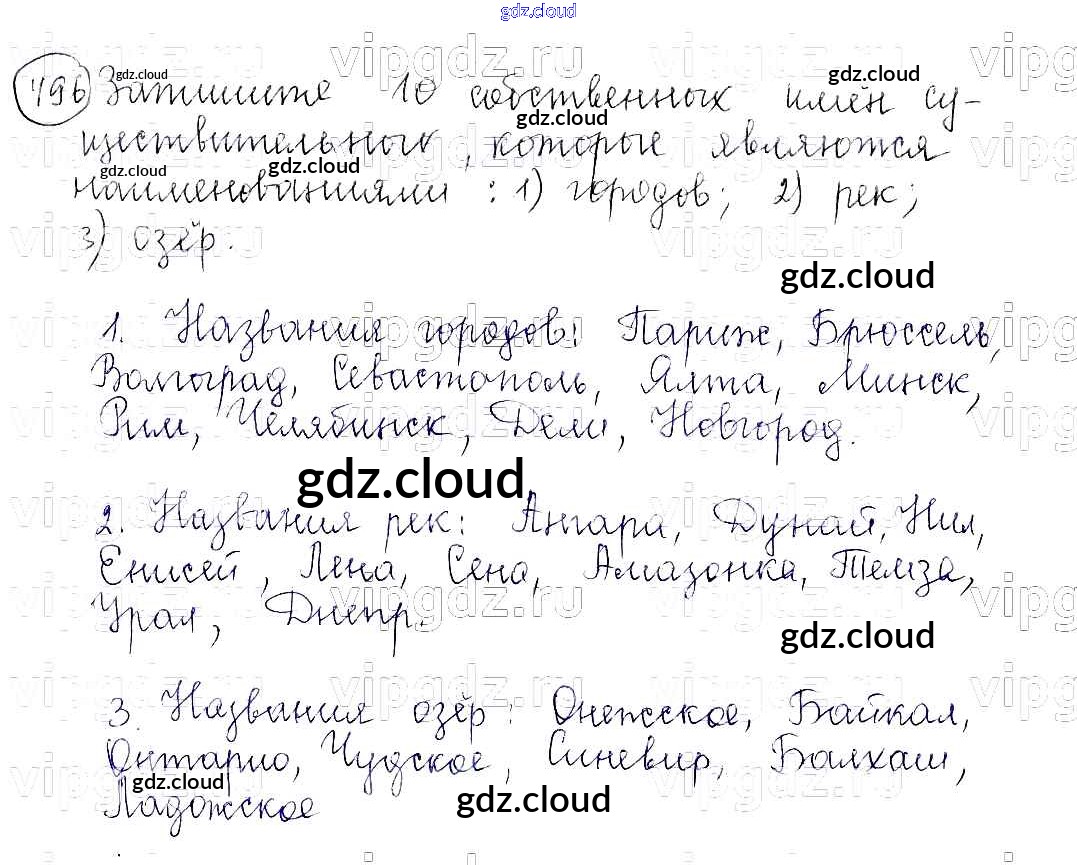 gdz.cloud
496 Запишите 10 собственных имён су-
ществительных, которые являются
наименованиями: 1) городов; 2) рек;
3) озёр.
gdz.cloud
1. Названия городов: Париж, Брюссель,
Волгоград, Севастополь, Ялта, Минск,
Рим, Челябинск, Дели, Новгород.
gdz.cloud
2. Названия рек: Ангара, Дунай, Нил,
Енисей, Лена, Сена, Амазонка, Темза,
Урал, Днепр.
gdz.cloud
3. Названия озёр: Онежское, Байкал,
Онтарио, Чудское, Синевир, Балхаш,
gdz.cloud
Ладожское
gdz.cloud